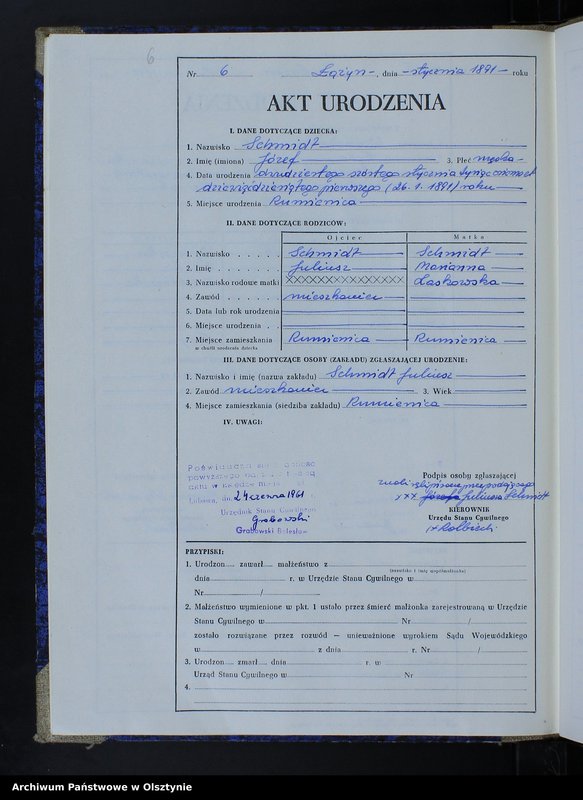 6
Nr 6 Łążyn, dnia stycznia 1891 roku
AKT URODZENIA
I. DANE DOTYCZĄCE DZIECKA:
1. Nazwisko Schmidt
2. Imię (imiona) Józef 3. Płeć męska
4. Data urodzenia dwudziestego szóstego stycznia tysiąc osiemset
dziewięćdziesiątego pierwszego (26.1.1891) roku
5. Miejsce urodzenia Rumienica
II. DANE DOTYCZĄCE RODZICÓW:
Ojciec Matka
1. Nazwisko Schmidt Schmidt
2. Imię Juliusz Marianna
3. Nazwisko rodowe matki XXXXXXXXXXXXXX Laskowska
4. Zawód mieszkaniec
5. Data lub rok urodzenia
6. Miejsce urodzenia
7. Miejsce zamieszkania Rumienica Rumienica
w chwili urodzenia dziecka
III. DANE DOTYCZĄCE OSOBY (ZAKŁADU) ZGŁASZAJĄCEJ URODZENIE:
1. Nazwisko i imię (nazwa zakładu) Schmidt Juliusz
2. Zawód mieszkaniec 3. Wiek
4. Miejsce zamieszkania (siedziba zakładu) Rumienica
IV. UWAGI:
Poświadcza się zgodność
powyższego
Lubawa, dn. 24 czerwca 1961 r.
Urzędnik Stanu Cywilnego
Grabowski
Grabowski Bolesław
Podpis osoby zgłaszającej
znaki niepiśmiennego
xxx Józefa Juliusza Schmidt
KIEROWNIK
Urzędu Stanu Cywilnego
PRZYPISKI:
1. Urodzon.... zawarł.... małżeństwo z
(nazwisko i imię współmałżonka)
dnia r. w Urzędzie Stanu Cywilnego w
Nr /
2. Małżeństwo wymienione w pkt. 1 ustało przez śmierć małżonka zarejestrowaną w Urzędzie
Stanu Cywilnego w Nr /
zostało rozwiązane przez rozwód – unieważnione wyrokiem Sądu Wojewódzkiego
w z dnia r. Nr /
3. Urodzon.... zmarł.... dnia r. w
Urząd Stanu Cywilnego w Nr
4.
Archiwum Państwowe w Olsztynie